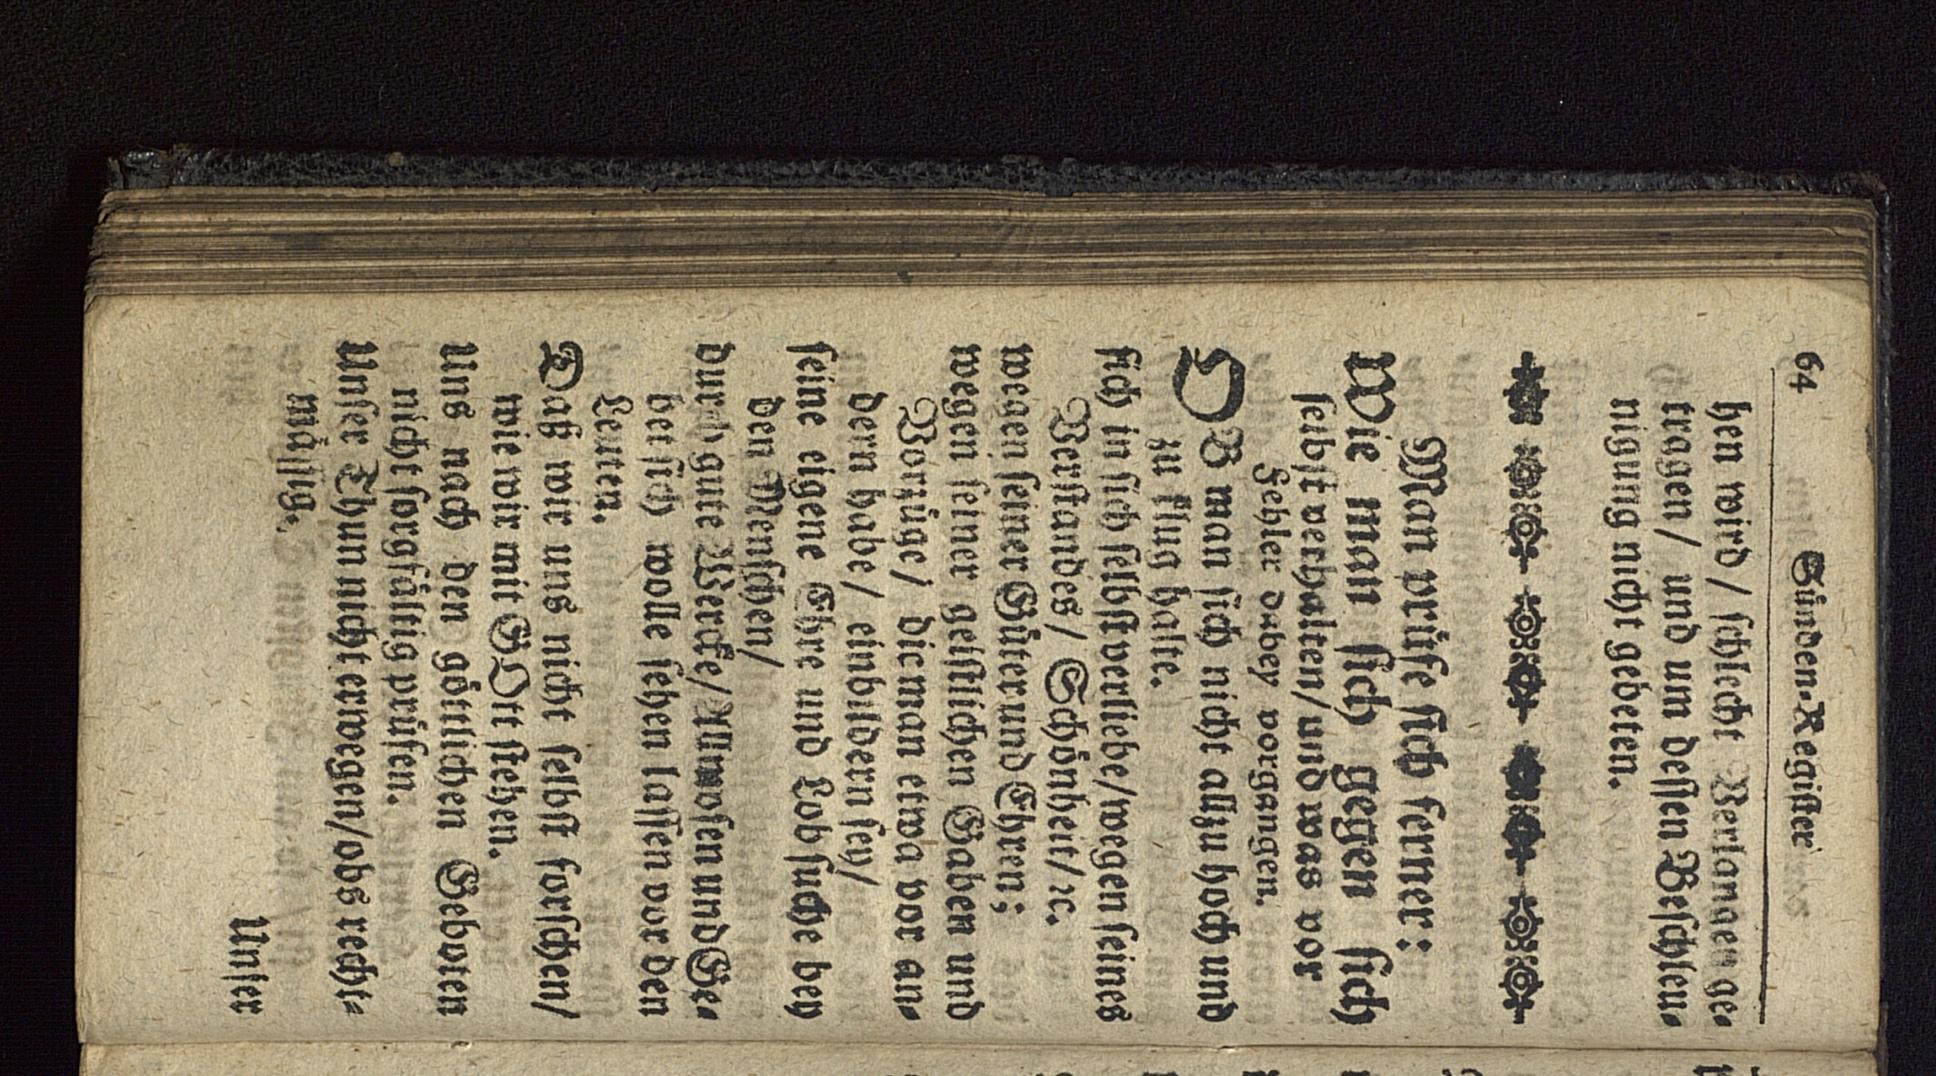 64 Sünden-Register
hen wird/ schlecht Verlangen ge-
tragen/ und um dessen Beschleu-
nigung nicht gebeten.
Man prüfe sich ferner:
Wie man sich gegen sich
selbst verhalten/ und was vor
Fehler dabey vorgangen.
OB man sich nicht allzu hoch und
zu klug halte.
sich in sich selbst verliebe/ wegen seines
Verstandes/ Schönheit/ ꝛc.
wegen seiner Güter und Ehren;
wegen seiner geistlichen Gaben und
Vorzüge/ die man etwa vor an-
dern habe/ einbildern sey/
seine eigene Ehre und Lob suche bey
den Menschen/
durch gute Wercke/ Allmosen und Ge-
bet sich wolle sehen lassen vor den
Leuten.
Daß wir uns nicht selbst forschen/
wie wir mit GOtt stehen.
Uns nach den göttlichen Geboten
nicht sorgfältig prüfen.
Unser Thun nicht erwegen/ obs recht-
mässig.
Unser